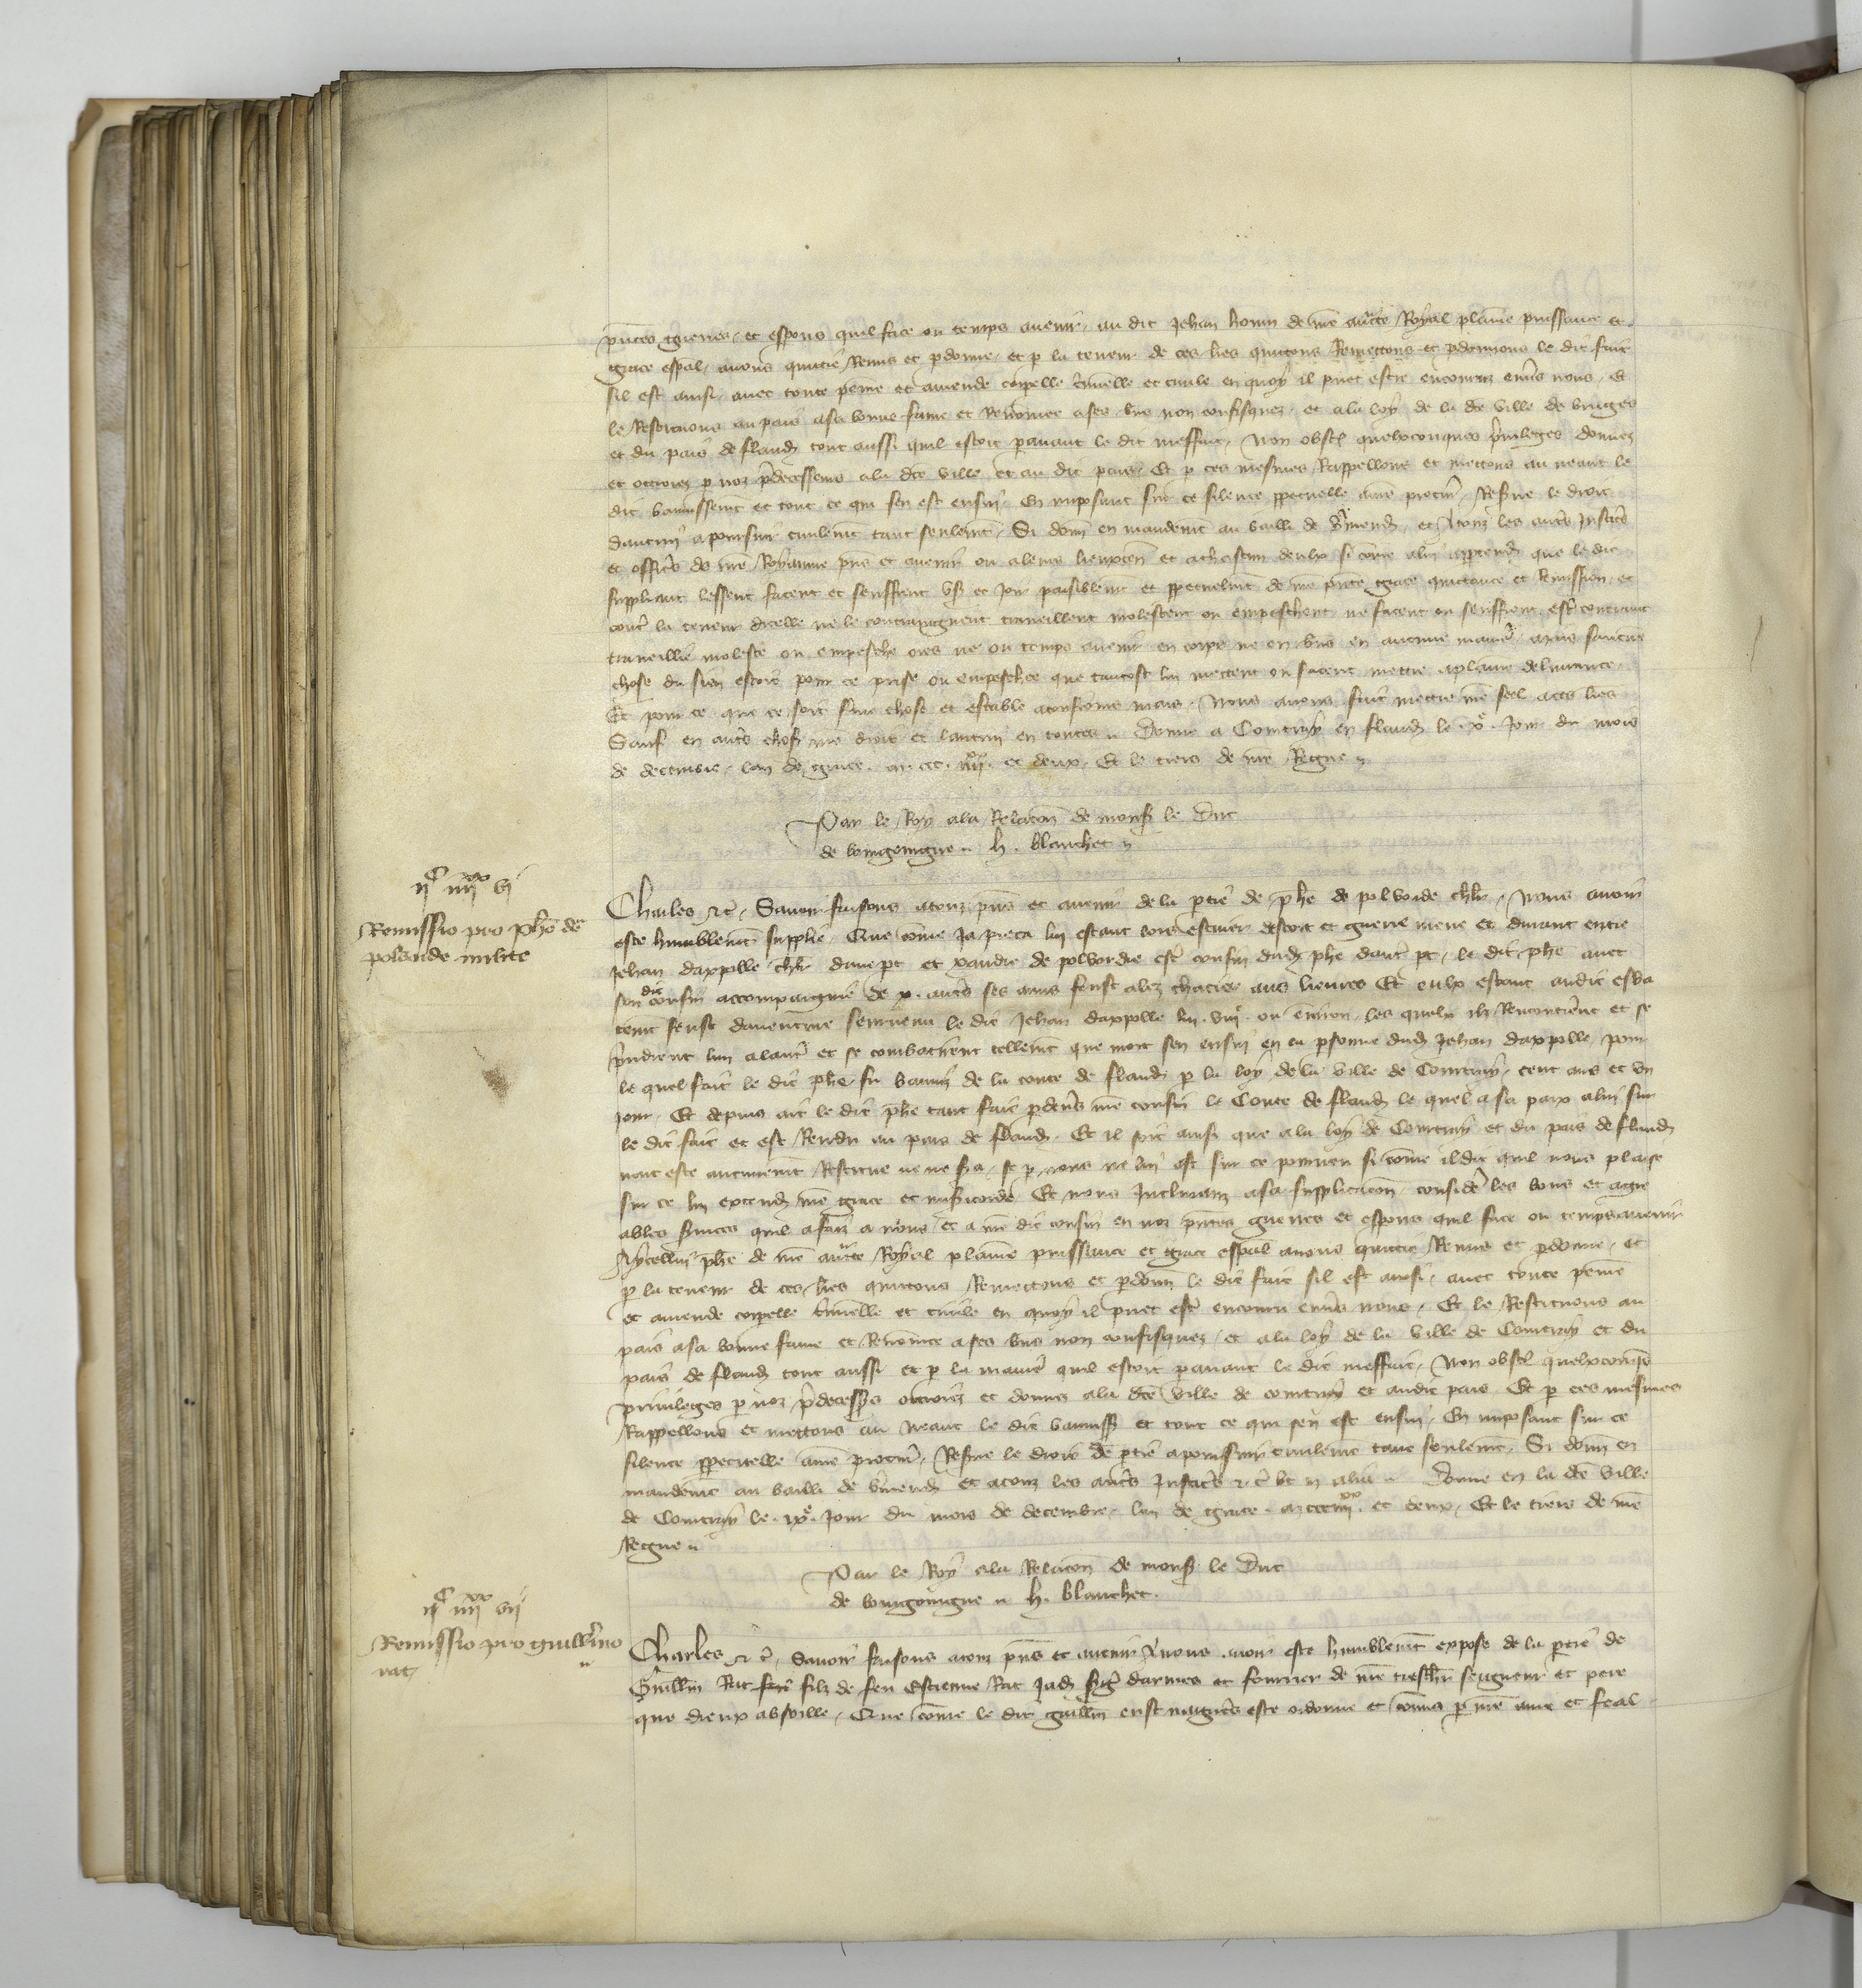 pñtes guerres et espons quil face ou temps avenir au dit Jehan homin de nrẽ aucte Royal plaine puissance et
grace espal avons quittie Remis et pdonne et p la teneur de ces lres quittons Remettons et pdonnons le dit fait
sil est ainsi avec toute peine et amende corpelle criminelle et civile en quoy il puet estre encouruz envs nous Et
le Restituons au pais a sa bonne fame et Renommee a ses bns non confisquez et a la loy de la dte ville de bruges
et du pais de fland tout aussi quil estoit pavant le dit meffait Non obst quelxconques privileges donnez
et ottroiez p noz pdecesseurs a la dte ville et au dit pais Et p ces mesmes Rappellons et mettons au neant le
dit bannissemt et tout ce qui sen est ensui En imposant sur ce silence ppetuelle a nrẽ procur Reserve le droit
dautrui a poursuir civilemt tant seulemt Si donn en mandemt au bailli de Vmend et a touz les autrs Justicrs
et officrs de nrẽ Royaume pñs et avenir ou a leurs lieuxten et a chascun deulx si come a lui appartend que le dit
suppliant lessent facent et seuffrent user et Joir paisiblemt et ppetuelmt de nrẽ pñte grace quittance et Remission et
contr la teneur dicelle ne le contraingnent traveillent molestent ou empeschent ne facent ou seuffrent estr contraint
traveillie moleste ou empeschie ores ne ou temps avenir en corps ne en bns en aucune manier ainz saucune
chose du sien estoit pour ce prise ou empeschee que tantost lui mettent ou facent mettre a plaine delivrance
Et pour ce que ce soit ferme chose et estable a touzjours mais Nous avons fait mettre nrẽ seel a ces lres
Sauf en autrs chos nrẽ droit et lautrui en toutes Donne a Courtray en fland le xe Jour du mois
de decembre lan de grace m ccc iiiixx et deux Et le tiers de nrẽ Regne
Par le Roy a la Relacon de mons le Duc
de bourgoingne h. blanchet
iic iiiixx vi
Remissio pro pho de
polvorde milite
Charles etc Savoir faisons a touz pñs et avenir de la ptie de phe de polvorde chlr Nous avoir
este humblemt supplie Que come Ja pieca lui estant lors escuier descort et guerre meue et durant entre
Jehan daxpolle chlr dune pt et xandre de polvordre estr cousin dud phe dautr pt le dit phe avec
son dit cousin accompaignie de x autrs ses amis feust alez chacier aus lievres Et eulx estant au dit esba
temt feust daventure seurvenu le dit Jehan daxpolle lui viiie ou environ les quelx ilz Rencontrerent et se
prindrent lun a lautr et se combatirent tellemt que mort sen ensui en la psonne dud Jehan daxpolle pour
le quel fait le dit phe fu banniz de la conte de fland p la loy de la ville de Courtray cent ans et un
jour Et depuis ait le dit phe tant fait pdevrs nrẽ cousin le Conte de fland le quel a sa paix a lui sur
le dit fait et est Rendu au pais de fland Et il soit ainsi que a la loy de Courtray et du pais de fland
nait este autremt Restitue ne ne sera se p nous ne lui est sur ce pourveu si come il dit quil nous plaise
sur ce lui extend nrẽ grace et misericorde Et nous Inclinanz a sa supplicacon considere les bons et agre
ables services quil a faiz a nous et a nrẽ dit cousin en noz pñtes guerres et espons quil face ou temps avenir
A ycellui phe de nrẽ aucte Royal plaine puissance et grace espal avons quittie Remis et pdonne et
p la teneur de ces lres quittons Remettons et pdonn le dit fait sil est ainsi avec toute peine
et amende corpelle criminelle et civile en quoy il puet estr encouru envs nous Et le Restituons au
pais a sa bonne fame et Renommee a ses bns non confisquez et a la loy de la ville de Courtray et du
pais de fland tout aussi et p la manier quil estoit pavant le dit meffait Non obst quelxconqs
privileges p noz pdecessrs ottroiez et donnes a la dte ville de courtray et au dit pais Et p ces mesmes
Rappellons et mettons au neant le dit banniss et tout ce qui sen est ensui En imposant sur ce
silence ppetuelle a nrẽ procur Reserve le droit de ptie a poursuir civilemt tant seulemt Si donn en
mandemt au bailli de vmend et a touz les autrs Justicrs etc ut in alia Donne en la dte ville
de Courtray le ixe Jour du mois de decembre lan de grace m ccc iiiixx et deux Et le tiers de nrẽ
Regne
Par le Roy a la Relacon de mons le Duc
de bourgoingne h. blanchet.
iic iiiixx vii
Remissio pro guillermo
rat
Charles etc Savoir faisons a touz pñs et avenir A nous avoir este humblemt expose de la ptie de
Guillm Rat filz de feu Estienne Rat Jad sergt darmes et fourrier de nrẽ treschr seigneur et pere
que dieux absoille Que come le dit guillm eust nagues este ordonne et comis p nrẽ ame et feal